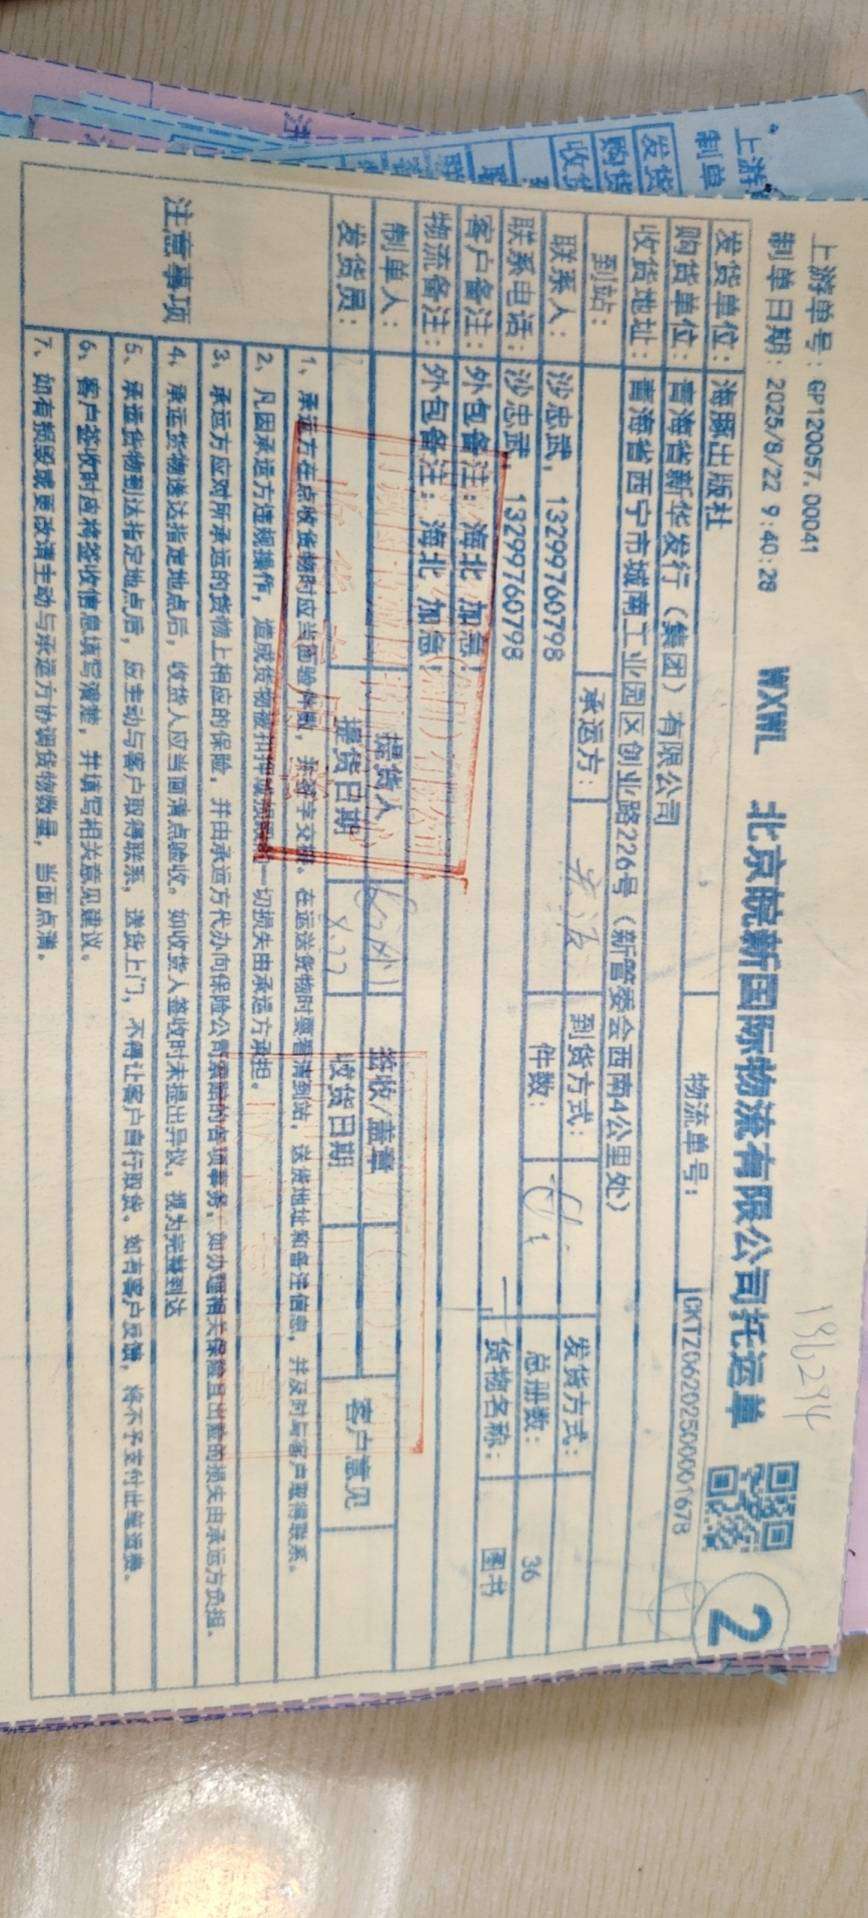 上游单号: GP120057.00041
196294
制单日期: 2025/8/22 9:40:28 WXWL 北京皖新国际物流有限公司托运单
2
发货单位: 海豚出版社 物流单号: CKTZ06202500001678
购货单位: 青海省新华发行(集团)有限公司
收货地址: 青海省西宁市城南工业园区创业路226号(新管委会西南4公里处)
到站: 承运方: 到货方式: 发货方式:
联系人: 沙忠武, 13299760798 件数: 总册数: 36
联系电话: 沙忠武, 13299760798 货物名称: 图书
客户备注: 外包备注: 海北 加急!
物流备注: 外包备注: 海北 加急!
制单人: 提货人 签收/盖章 客户意见
发货员: 提货日期 8.22 收货日期
注意事项
1、承运方在点收货物时应当面验件数,并签字交接。在运送货物时要看清到站,送货地址和备注信息,并及时与客户取得联系。
2、凡因承运方违规操作,造成货物被扣押或损毁的一切损失由承运方承担。
3、承运方应对所承运的货物上相应的保险,并由承运方代办向保险公司索赔的各项事务,如办理相关保险且出险的损失由承运方负担。
4、承运货物送达指定地点后,收货人应当面清点验收。如收货人签收时未提出异议,视为完整到达
5、承运货物到达指定地点后,应主动与客户取得联系,送货上门,不得让客户自行取货。如有客户反馈,将不予支付此笔运费。
6、客户签收时应将签收信息填写清楚,并填写相关意见建议。
7、如有损毁或要改请主动与承运方协调货物数量,当面点清。
上游
制单
发货
购货
收货